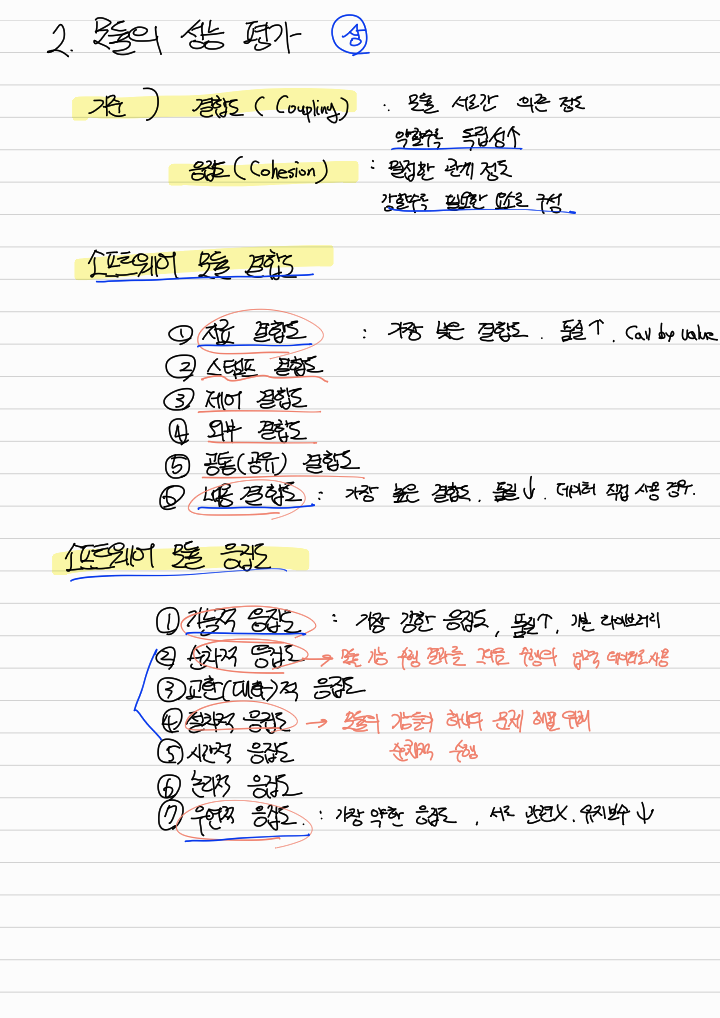 2. 모듈의 성능 평가 상
기준) 결합도(Coupling) : 모듈 서로간 의존 정도
약할수록 독립성↑
응집도(Cohesion) : 밀접한 관계 정도
강할수록 필요한 요소로 구성
소프트웨어 모듈 결합도
① 자료 결합도 : 가장 낮은 결합도. 품질↑. Call by value
② 스탬프 결합도
③ 제어 결합도
④ 외부 결합도
⑤ 공통(공유) 결합도
⑥ 내용 결합도 : 가장 높은 결합도. 품질↓. 데이터 직접 사용 경우.
소프트웨어 모듈 응집도
① 기능적 응집도 : 가장 강한 응집도, 품질↑, 기본 라이브러리
② 순차적 응집도 → 모듈 기능 수행 결과를 다음 수행의 입력 데이터로 사용
③ 교환(대화)적 응집도
④ 절차적 응집도 → 모듈의 기능들이 하나의 문제 해결 위해
순차적 수행
⑤ 시간적 응집도
⑥ 논리적 응집도
⑦ 우연적 응집도. : 가장 약한 응집도, 서로 관련X. 유지보수↓